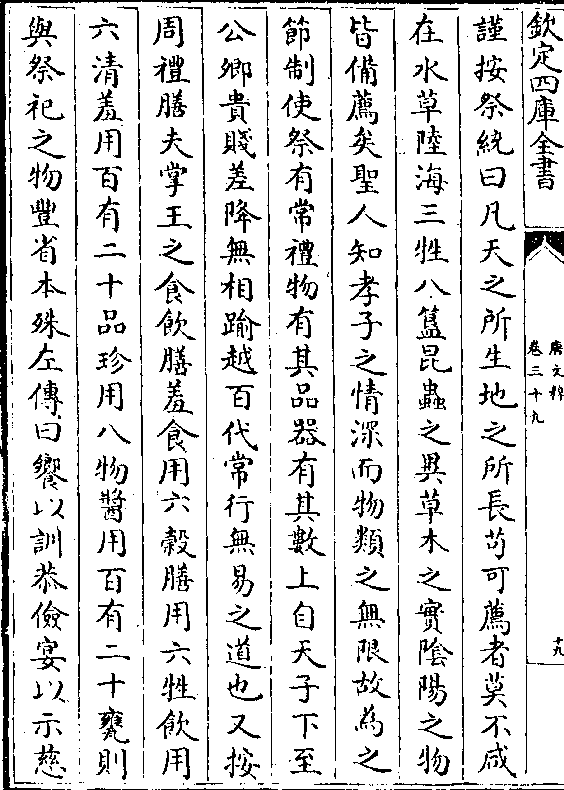 欽定四庫全書
唐文粹
卷三十九
十九
謹按祭統曰凡天之所生地之所長茍可薦者莫不咸
在水草陸海三牲八簋昆蟲之異草木之實陰陽之物
皆備薦矣聖人知孝子之情深而物類之無限故為之
節制使祭有常禮物有其品器有其數上自天子下至
公卿貴賤差降無相踰越百代常行無易之道也又按
周禮膳夫掌王之食飲膳羞食用六穀膳用六牲飲用
六清羞用百有二十品珍用八物醬用百有二十甕則
與祭祀之物豐省本殊左傳曰饗以訓恭儉宴以示慈